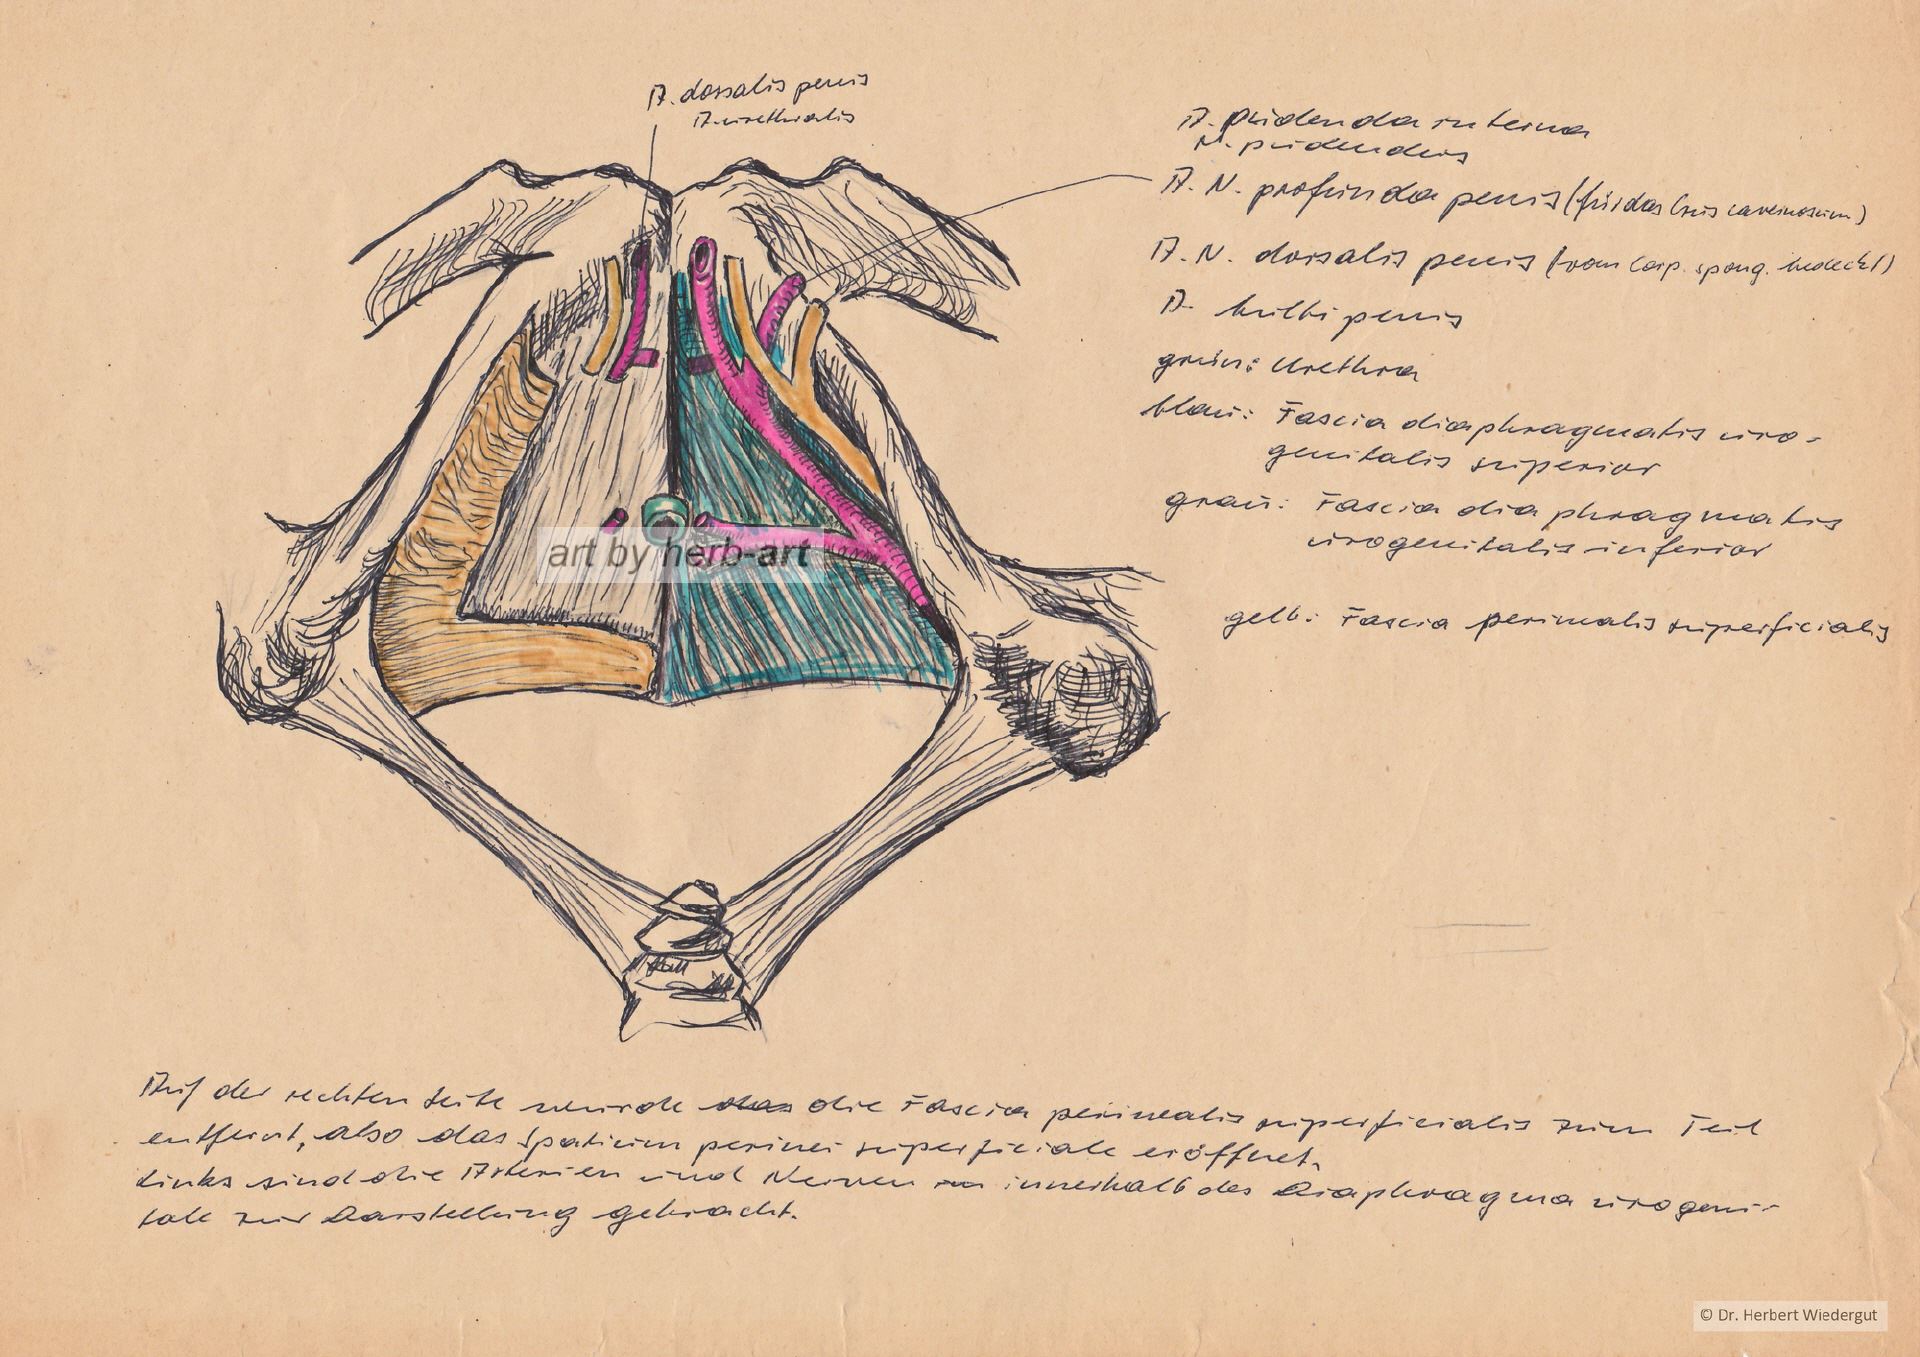 A. dorsalis penis
A. urethralis
A. pudenda interna
N. pudendus
A. N. profunda penis (für das Crus cavernosum)
A. N. dorsalis penis (vom Corp. spong. bedeckt)
A. bulbi penis
grün: Urethra
blau: Fascia diaphragmatis uro-
genitalis superior
grau: Fascia diaphragmatis
urogenitalis inferior
gelb: Fascia perinealis superficialis
art by herb-art
Auf der rechten Seite wurde die Fascia perinealis superficialis zum Teil
entfernt, also das Spatium perinei superficiale eröffnet.
Links sind die Arterien und Nerven innerhalb des Diaphragma urogeni-
tale zur Darstellung gebracht.
© Dr. Herbert Wiedergut